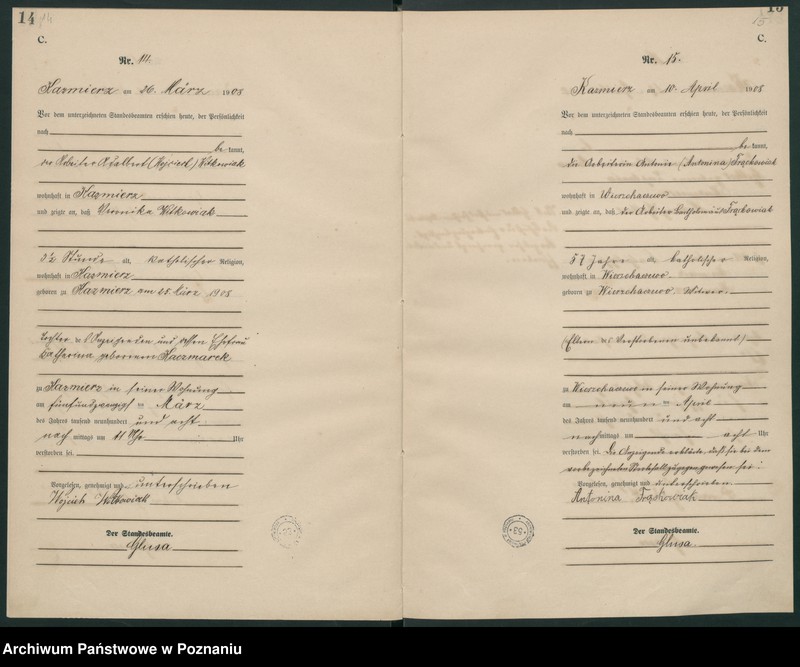 14
C.
Nr. 14.
Kazmierz am 26. März 1908
Vor dem unterzeichneten Standesbeamten erschien heute, der Persönlichkeit
nach
be kannt,
der Arbeiter Adalbert (Wojciech) Witkowiak
wohnhaft in Kazmierz
und zeigte an, daß Veronika Witkowiak
3½ Stunde alt, katholischer Religion,
wohnhaft in Kazmierz
geboren zu Kazmierz am 25. März 1908
Tochter des Anzeigenden und dessen Ehefrau
Katharina geborenen Kaczmarek
zu Kazmierz in seiner Wohnung
am fünfundzwanzigsten März
des Jahres tausend neunhundert und acht
nach mittags um 11 Uhr
verstorben sei.
Vorgelesen, genehmigt und unterschrieben
Wojciech Witkowiak
Der Standesbeamte.
Glusa
15
C.
Nr. 15.
Kazmierz am 10. April 1908
Vor dem unterzeichneten Standesbeamten erschien heute, der Persönlichkeit
nach
be kannt,
die Arbeiterin Antonie (Antonina) Frąckowiak
wohnhaft in Wierzchaczewo
und zeigte an, daß der Arbeiter Bartholomäus Frąckowiak
57 Jahre alt, katholischer Religion,
wohnhaft in Wierzchaczewo
geboren zu Wierzchaczewo, Witwer.
(Eltern des Verstorbenen unbekannt)
zu Wierzchaczewo in seiner Wohnung
am neun ten April
des Jahres tausend neunhundert und acht
nachmittags um acht Uhr
verstorben sei. Die Anzeigende erklärte, daß sie bei dem
vorbezeichneten Sterbefall zugegen gewesen sei.
Vorgelesen, genehmigt und unterschrieben
Antonina Frąckowiak
Der Standesbeamte.
Glusa.
53
53
Archiwum Państwowe w Poznaniu